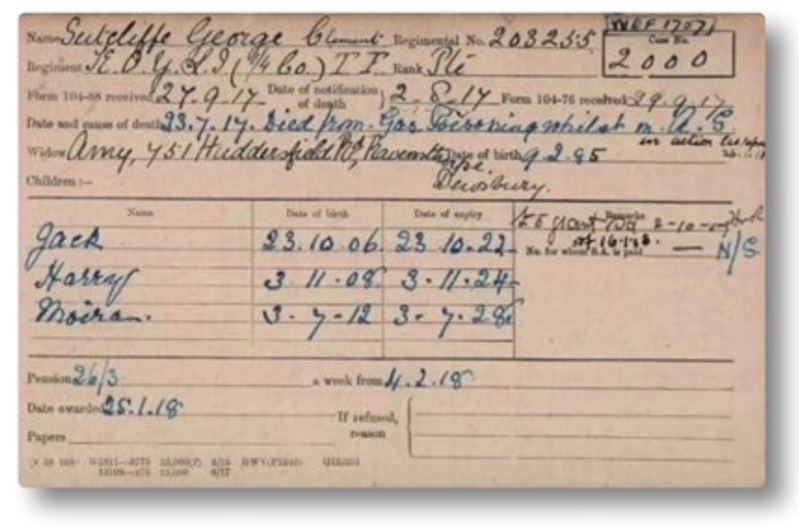 Name Sutcliffe George Clement Regimental No. 203255
WRF 17071 Case No. 2000
Regiment K.O.Y.L.I (1/4 Co.) T F. Rank Pte
Form 104-88 received 27.9.17 Date of notification of death 2.8.17 Form 104-76 received 29.9.17
Date and cause of death 23.7.17. Died from Gas Poisoning whilst in A. S.
in action
Widow Amy, 751 Huddersfield Rd, Ravensthorpe. Date of birth 9.2.85
Children:— Dewsbury.
Name Date of birth Date of expiry Remarks
£5 grant 2-10-
Jack 23.10.06 23.10.22
No. for whom S.A. is paid — N/S
Harry 3 11.08 3.11.24
Moira. 3-7-12 3-7.28
Pension 26/3 a week from 4.2.18
Date awarded 25.1.18 If refused, reason
Papers